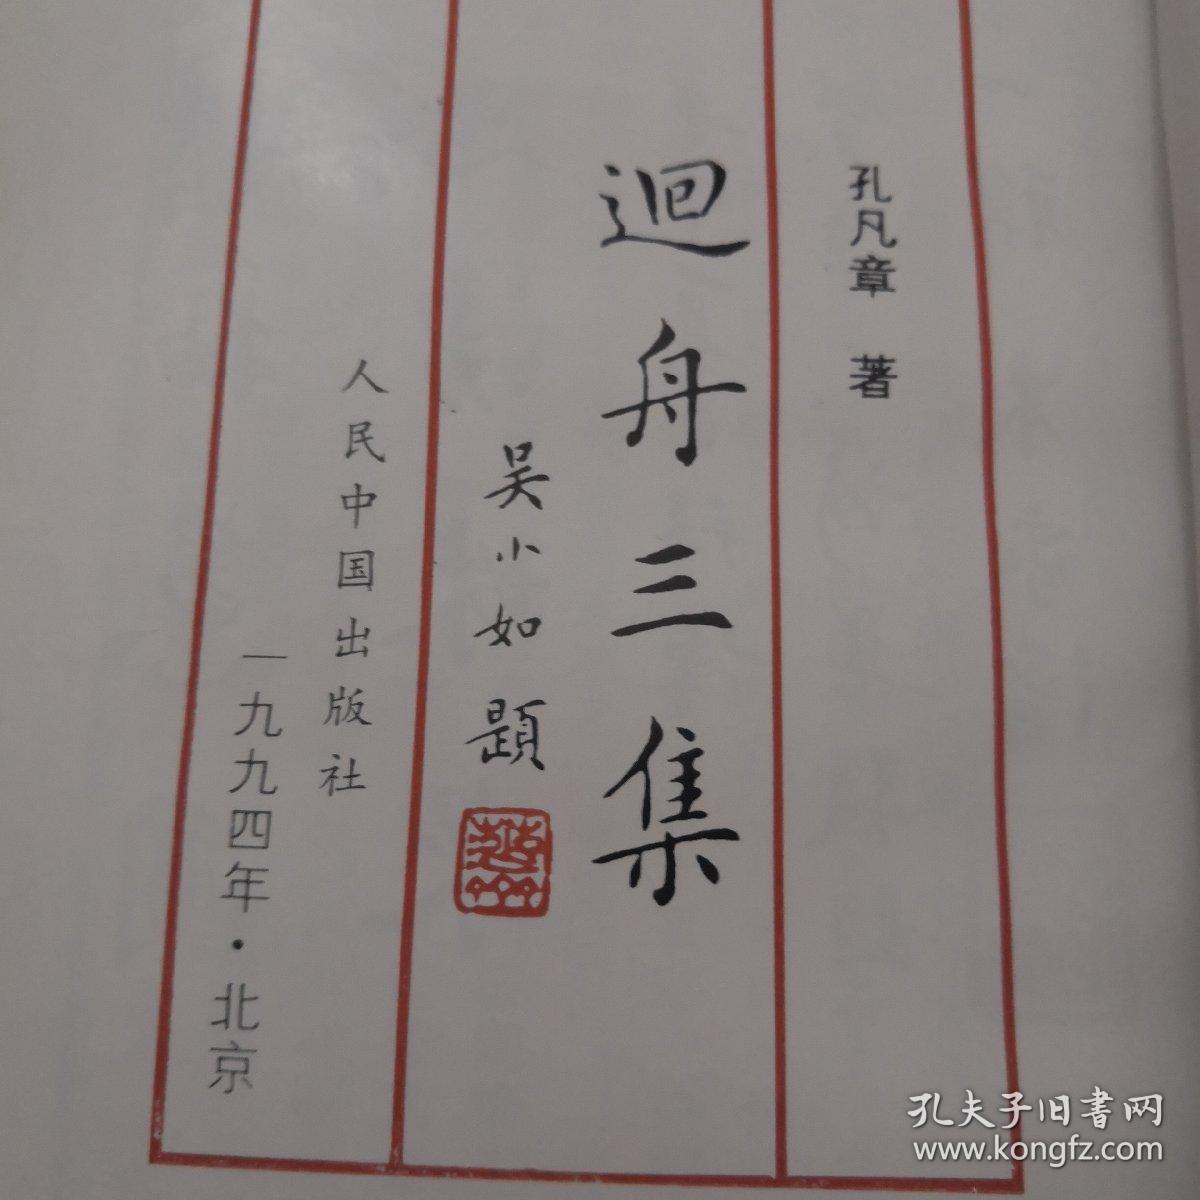 孔凡章 著
迴舟三集
吴小如題
人民中国出版社
一九九四年·北京
孔夫子旧書网
www.kongfz.com